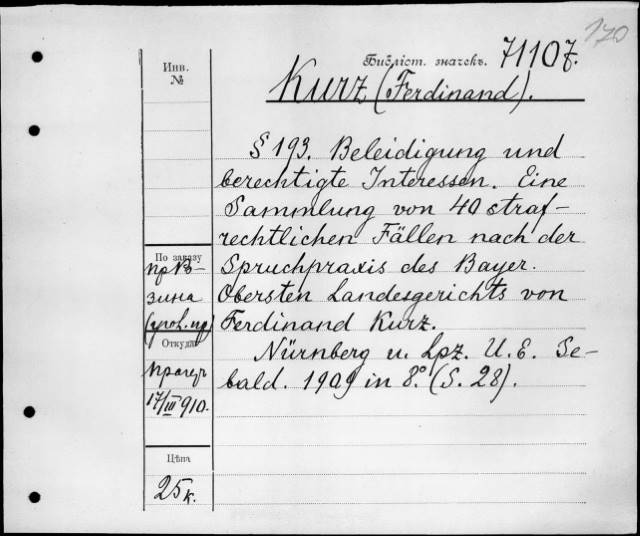 170
Инв.
№
Библіот. значекъ. 71107.
Kurz (Ferdinand).
§ 193. Beleidigung und
berechtigte Interessen. Eine
Sammlung von 40 straf-
rechtlichen Fällen nach der
Spruchpraxis des Bayer.
Obersten Landesgerichts von
Ferdinand Kurz.
Nürnberg u. Lpz. U. E. Se-
bald. 1909 in 8.° (S. 28).
По заказу
зина
Откуда
17/III 910.
Цѣна
25 к.